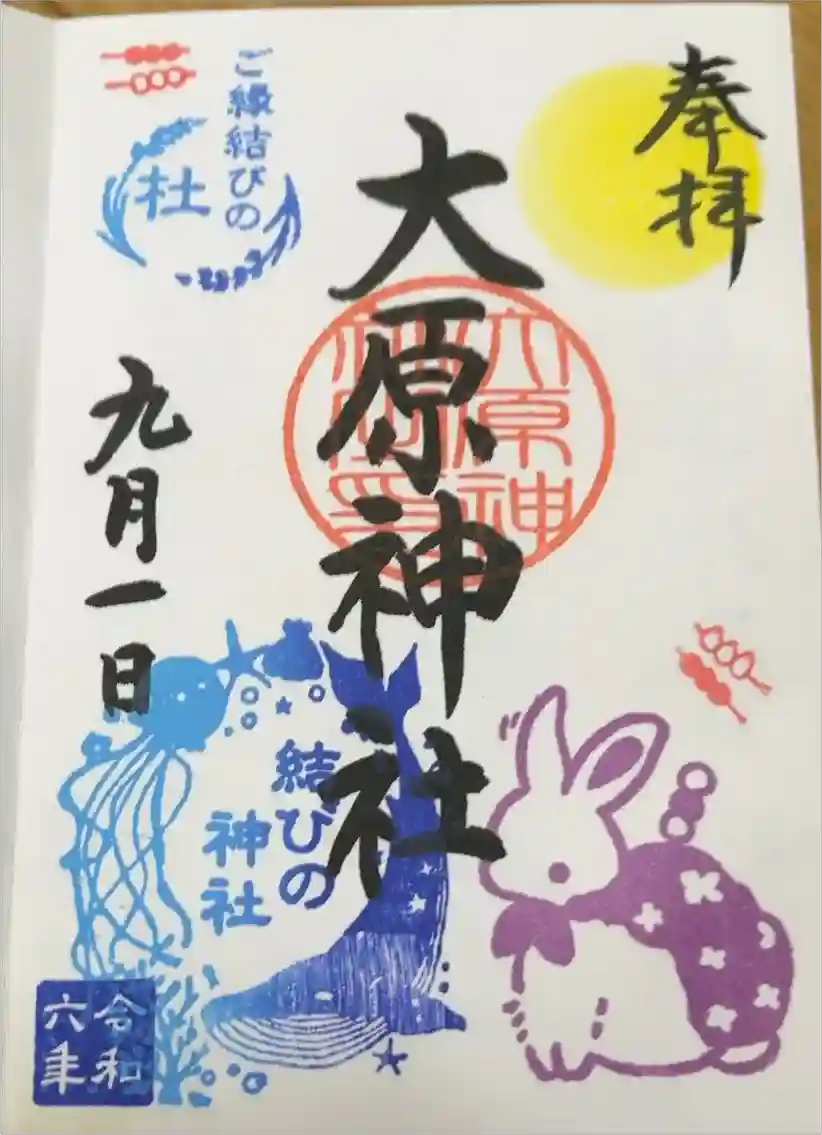 奉拝
大原神社
ご縁結びの
杜
九月一日
結びの
神社
令和
六年